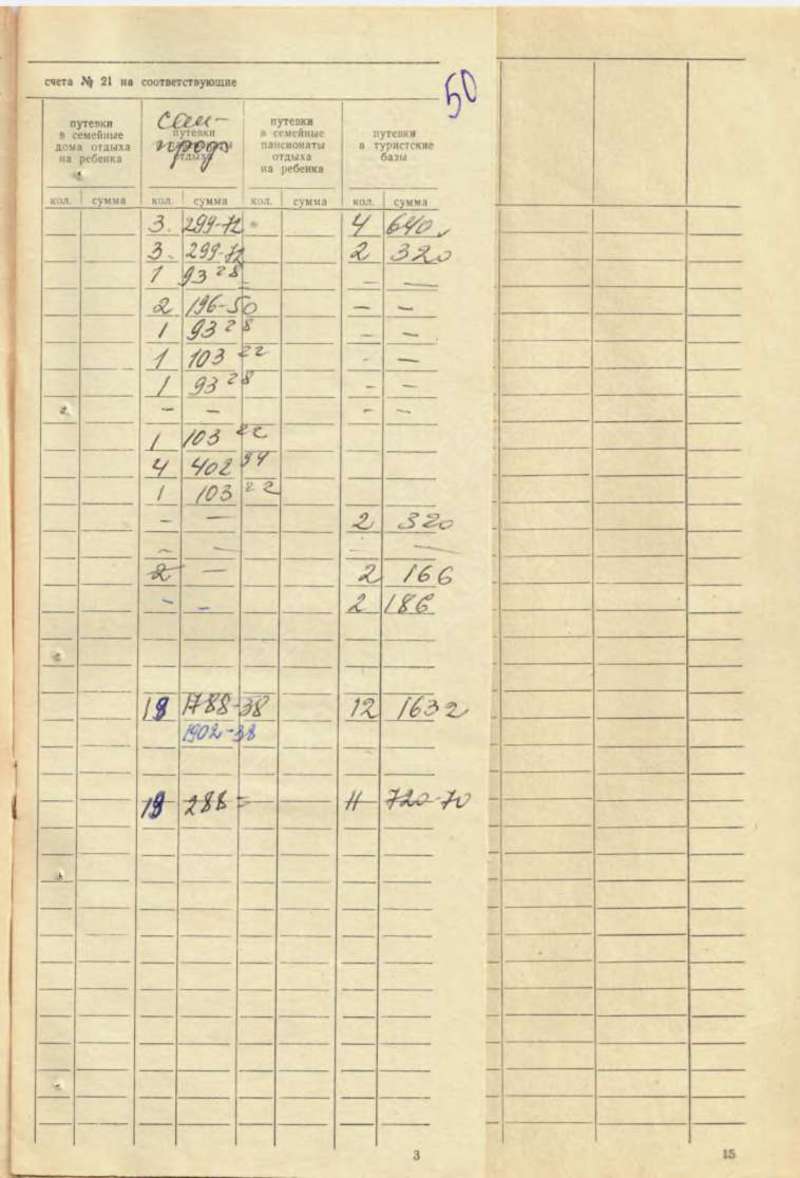 счета № 21 на соответствующие
50
путевки в семейные дома отдыха на ребенка
сан-
путевки
отдыха
путевки в семейные пансионаты отдыха на ребенка
путевки в туристские базы
кол. сумма кол. сумма кол. сумма кол. сумма
3. 299-72 4 640
3. 299-72 2 320
1 93 28 — —
2 196-50 — —
1 93 28 — —
1 103 22 - —
1 93 28 — —
— — — —
1 103 22
4 402 94
1 103 22
— — 2 320
— — — —
2 — 2 166
— — 2 186
19 1788-38 12 1632
1902-38
19 288= 11 720-70
3
15